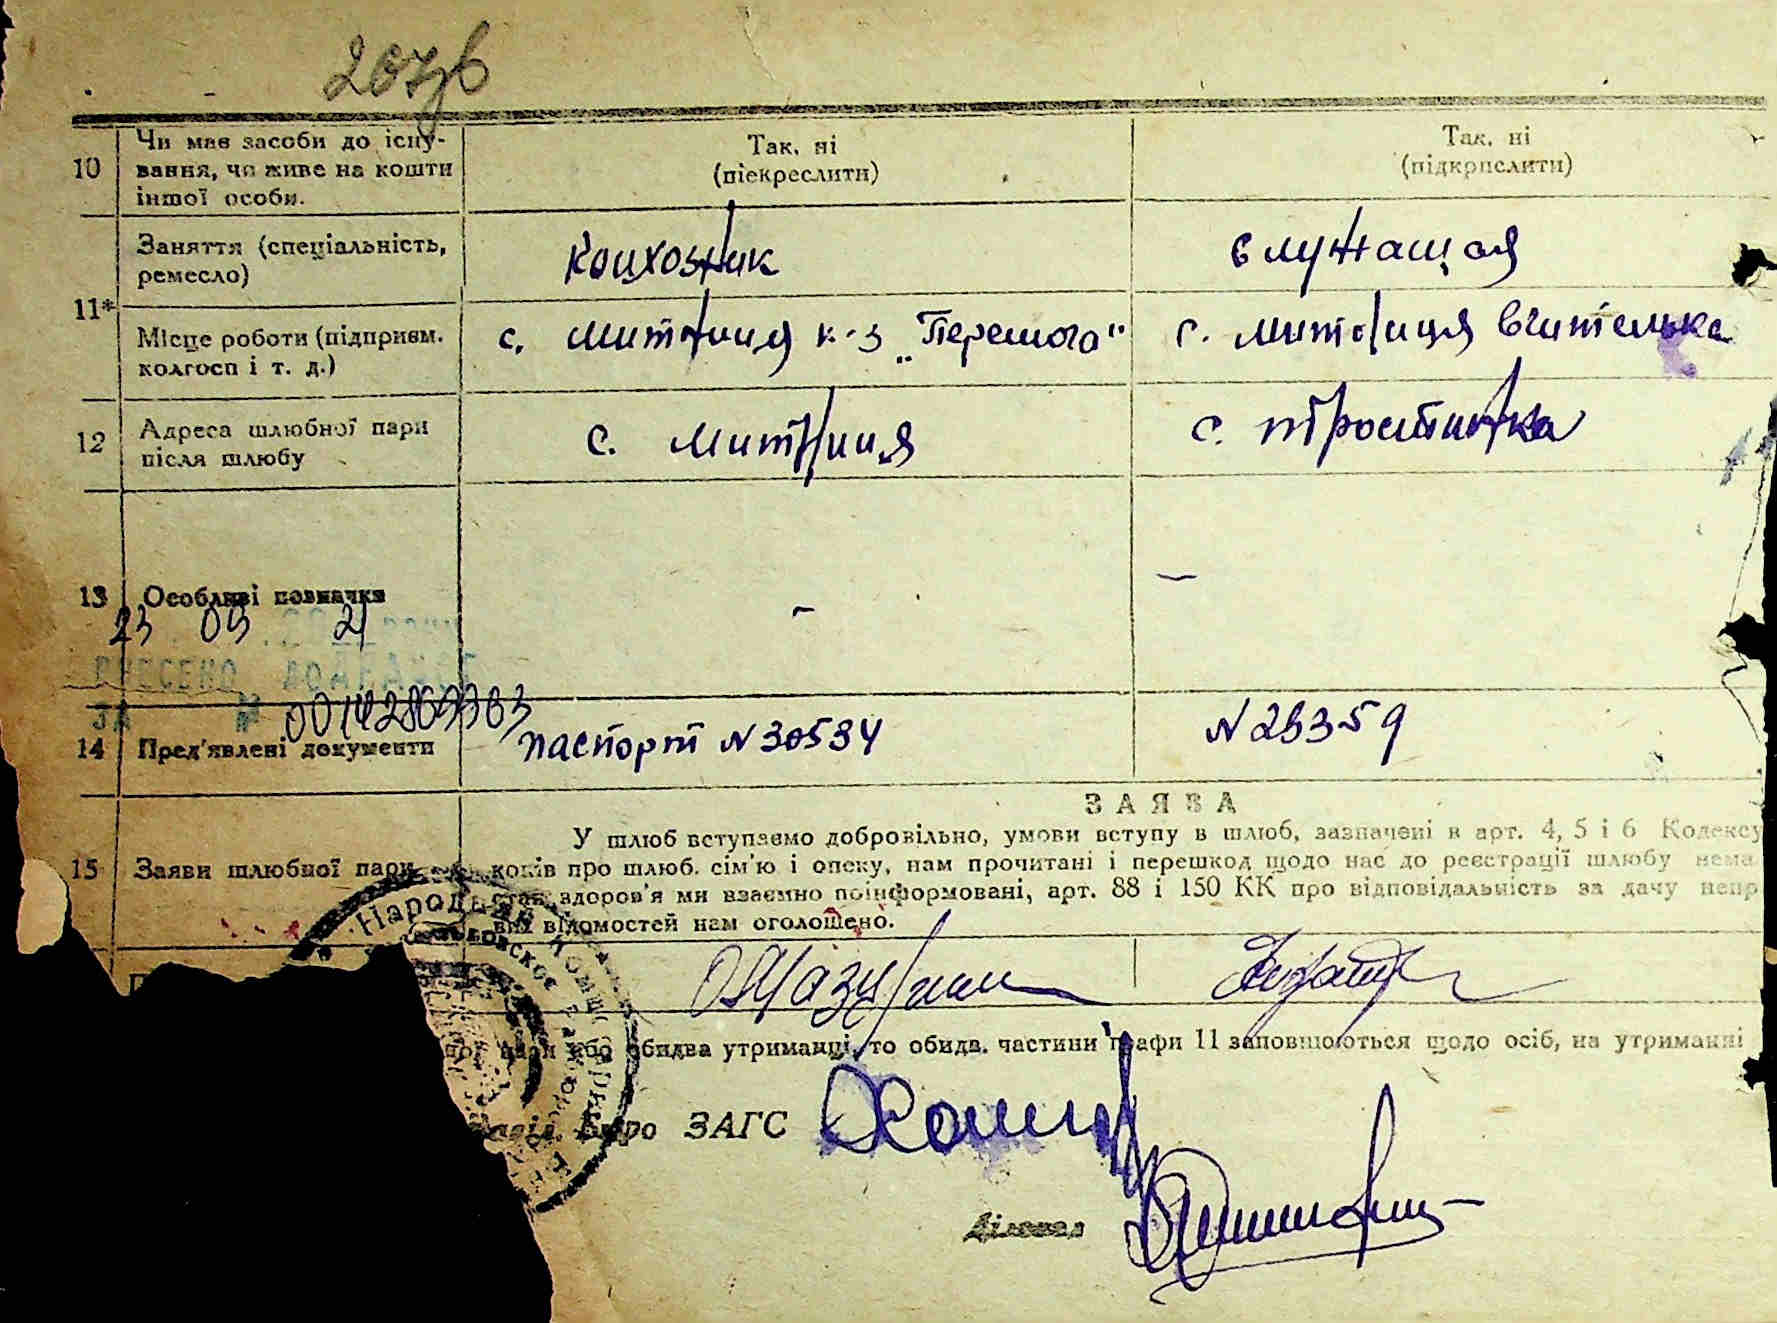 10
Чи має засоби до існу-
вання, чи живе на кошти
іншої особи.
Так, ні
(піекреслити)
Так, ні
(підкрпслити)
11*
Заняття (спеціальність,
ремесло)
Колхозник
служащая
Місце роботи (підприєм.
колгосп і т. д.)
с. Митниця к-з „Перемога"
с. Митниця вчителька
12
Адреса шлюбної пари
після шлюбу
с. Митниця
с. Тростинка
13
Особливі позначки
–
–
23 09 21
ВНЕСЕНО ДО ДРАЦС
ЗА № 00142869983
14
Пред'явлені документи
паспорт N 30534
N 28359
ЗАЯВА
15
Заяви шлюбної пари
У шлюб вступаємо добровільно, умови вступу в шлюб, зазначені в арт. 4, 5 і 6 Кодексу
про шлюб. сім'ю і опеку, нам прочитані і перешкод щодо нас до реєстрації шлюбу нема
стан здоров'я ми взаємно поінформовані, арт. 88 і 150 КК про відповідальність за дачу непр
вих відомостей нам оголошено.
Народный Комис
пари або обидва утриманці, то обидв. частини графи 11 заповнюються щодо осіб, на утриманні
Бюро ЗАГС
Діловод